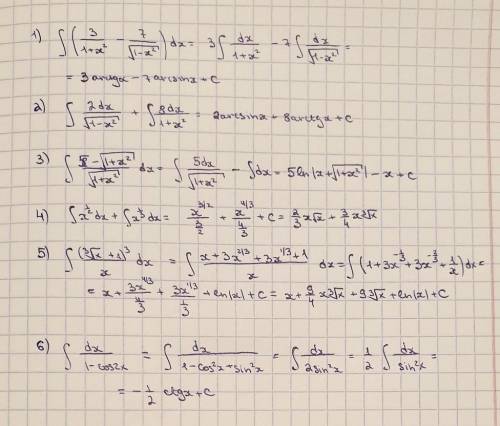 1) ∫ (3/(1+x²) − 7/√(1−x²)) dx = 3∫ dx/(1+x²) − 7∫ dx/√(1−x²) =
= 3arctgx − 7arcsinx + C
2) ∫ 2dx/√(1−x²) + ∫ 8dx/(1+x²) = 2arcsinx + 8arctgx + C
3) ∫ (5−√(1+x²))/√(1+x²) dx = ∫ 5dx/√(1+x²) − ∫dx = 5ln|x+√(1+x²)| − x + C
4) ∫x^(1/2)dx + ∫x^(1/3)dx = x^(3/2)/(3/2) + x^(4/3)/(4/3) + C = 2/3 x√x + 3/4 x∛x
5) ∫ (∛x+1)³/x dx = ∫ (x+3x^(2/3)+3x^(1/3)+1)/x dx = ∫(1+3x^(−1/3)+3x^(−2/3)+1/x)dx =
= x + 3x^(4/3)/(4/3) + 3x^(1/3)/(1/3) + ln|x| + C = x + 9/4 x∛x + 9∛x + ln|x| + C
6) ∫ dx/(1−cos2x) = ∫ dx/(1−cos²x+sin²x) = ∫ dx/(2sin²x) = 1/2 ∫ dx/sin²x =
= −1/2 ctgx + C